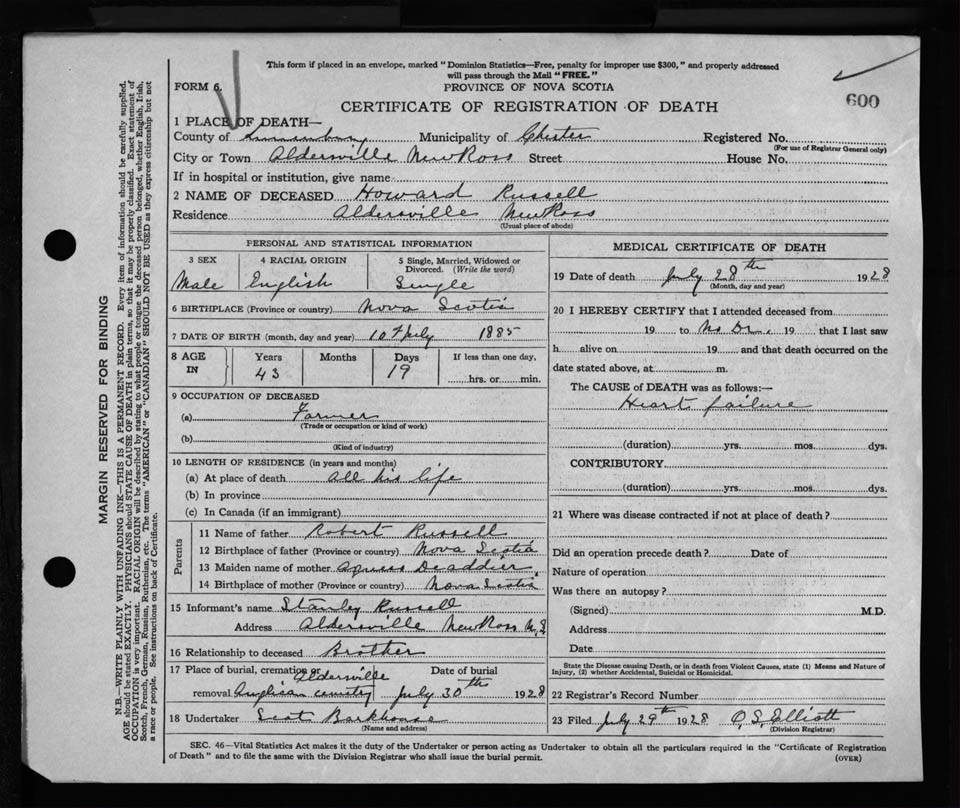 This form if placed in an envelope, marked "Dominion Statistics—Free, penalty for improper use $300," and properly addressed
will pass through the Mail "FREE."
FORM 6.
PROVINCE OF NOVA SCOTIA
CERTIFICATE OF REGISTRATION OF DEATH
600
1 PLACE OF DEATH—
County of Lunenburg Municipality of Chester Registered No.
(For use of Registrar General only)
City or Town Aldersville New Ross Street House No.
If in hospital or institution, give name
2 NAME OF DECEASED Howard Russell
Residence Aldersville New Ross
(Usual place of abode)
PERSONAL AND STATISTICAL INFORMATION
3 SEX 4 RACIAL ORIGIN 5 Single, Married, Widowed or
Divorced. (Write the word)
Male English Single
6 BIRTHPLACE (Province or country) Nova Scotia
7 DATE OF BIRTH (month, day and year) 10 July 1885
8 AGE IN Years Months Days If less than one day,
43 19 hrs. or min.
9 OCCUPATION OF DECEASED
(a) Farmer
(Trade or occupation or kind of work)
(b)
(Kind of industry)
10 LENGTH OF RESIDENCE (in years and months)
(a) At place of death All his life
(b) In province
(c) In Canada (if an immigrant)
Parents
11 Name of father Robert Russell
12 Birthplace of father (Province or country) Nova Scotia
13 Maiden name of mother Agness
14 Birthplace of mother (Province or country) Nova Scotia
15 Informant's name Stanley Russell
Address Aldersville New Ross N.S.
16 Relationship to deceased Brother
17 Place of burial, cremation or Aldersville Date of burial
removal Anglican July 30th 1928
18 Undertaker Scot Barkhouse
(Name and address)
MEDICAL CERTIFICATE OF DEATH
19 Date of death July 28th 1928
(Month, day and year)
20 I HEREBY CERTIFY that I attended deceased from
19 to No Dr. 19 that I last saw
h alive on 19 and that death occurred on the
date stated above, at m.
The CAUSE of DEATH was as follows:—
Heart failure
(duration) yrs. mos. dys.
CONTRIBUTORY
(duration) yrs. mos. dys.
21 Where was disease contracted if not at place of death?
Did an operation precede death? Date of
Nature of operation
Was there an autopsy?
(Signed) M.D.
Address
Date
State the Disease causing Death, or in death from Violent Causes, state (1) Means and Nature of
Injury, (2) whether Accidental, Suicidal or Homicidal.
22 Registrar's Record Number
23 Filed July 29th 1928 O. S. Elliott
(Division Registrar)
SEC. 46—Vital Statistics Act makes it the duty of the Undertaker or person acting as Undertaker to obtain all the particulars required in the "Certificate of Registration
of Death" and to file the same with the Division Registrar who shall issue the burial permit.
(OVER)
MARGIN RESERVED FOR BINDING
N.B.—WRITE PLAINLY WITH UNFADING INK—THIS IS A PERMANENT RECORD. Every item of information should be carefully supplied.
AGE should be stated EXACTLY. PHYSICIANS should STATE CAUSE OF DEATH in plain terms, so that it may be properly classified. Exact statement of
OCCUPATION is very important. RACIAL ORIGIN will be described by stating to what people or tongue the deceased person belonged, whether English, Irish,
Scotch, French, German, Russian, Ruthenian, etc. The terms "AMERICAN" or "CANADIAN" SHOULD NOT BE USED as they express citizenship but not
a race or people. See instructions on back of Certificate.